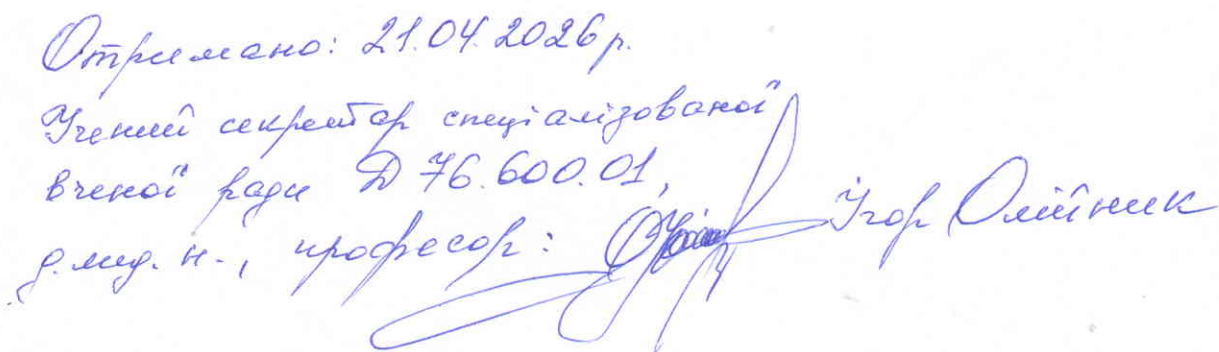 Отримано: 21.04.2026 р.
Учений секретар спеціалізованої
вченої ради Д 76.600.01,
д.мед.н., професор: Ігор Олійник